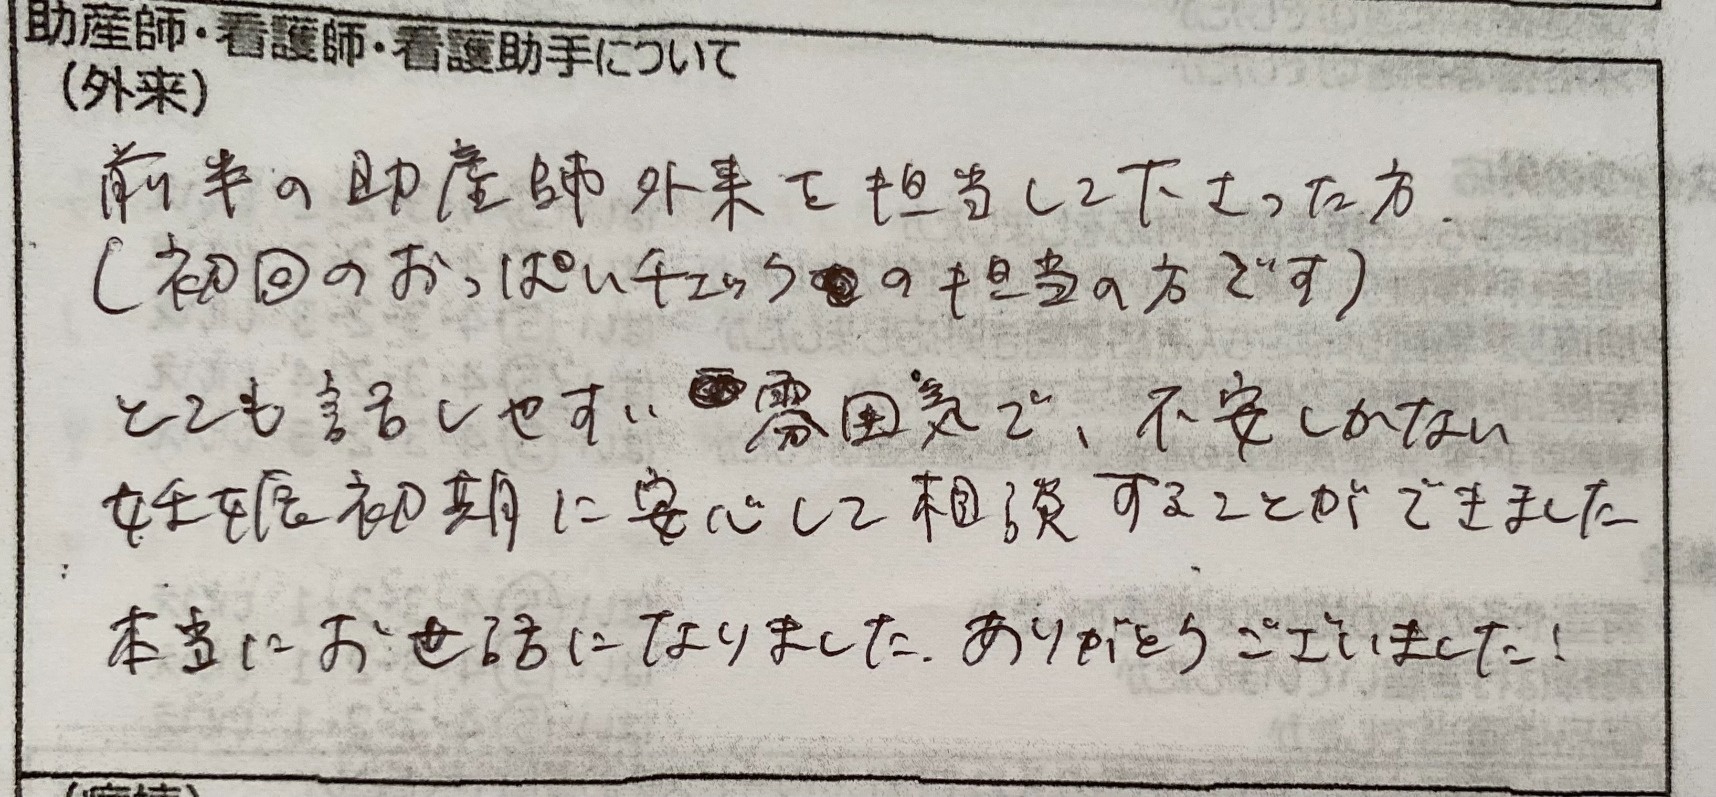 助産師・看護師・看護助手について
(外来)
前半の助産師外来を担当して下さった方.
(初回のおっぱいチェックの担当の方です)
とても話しやすい雰囲気で、不安しかない
妊娠初期に安心して相談することができました
本当にお世話になりました. ありがとうございました!